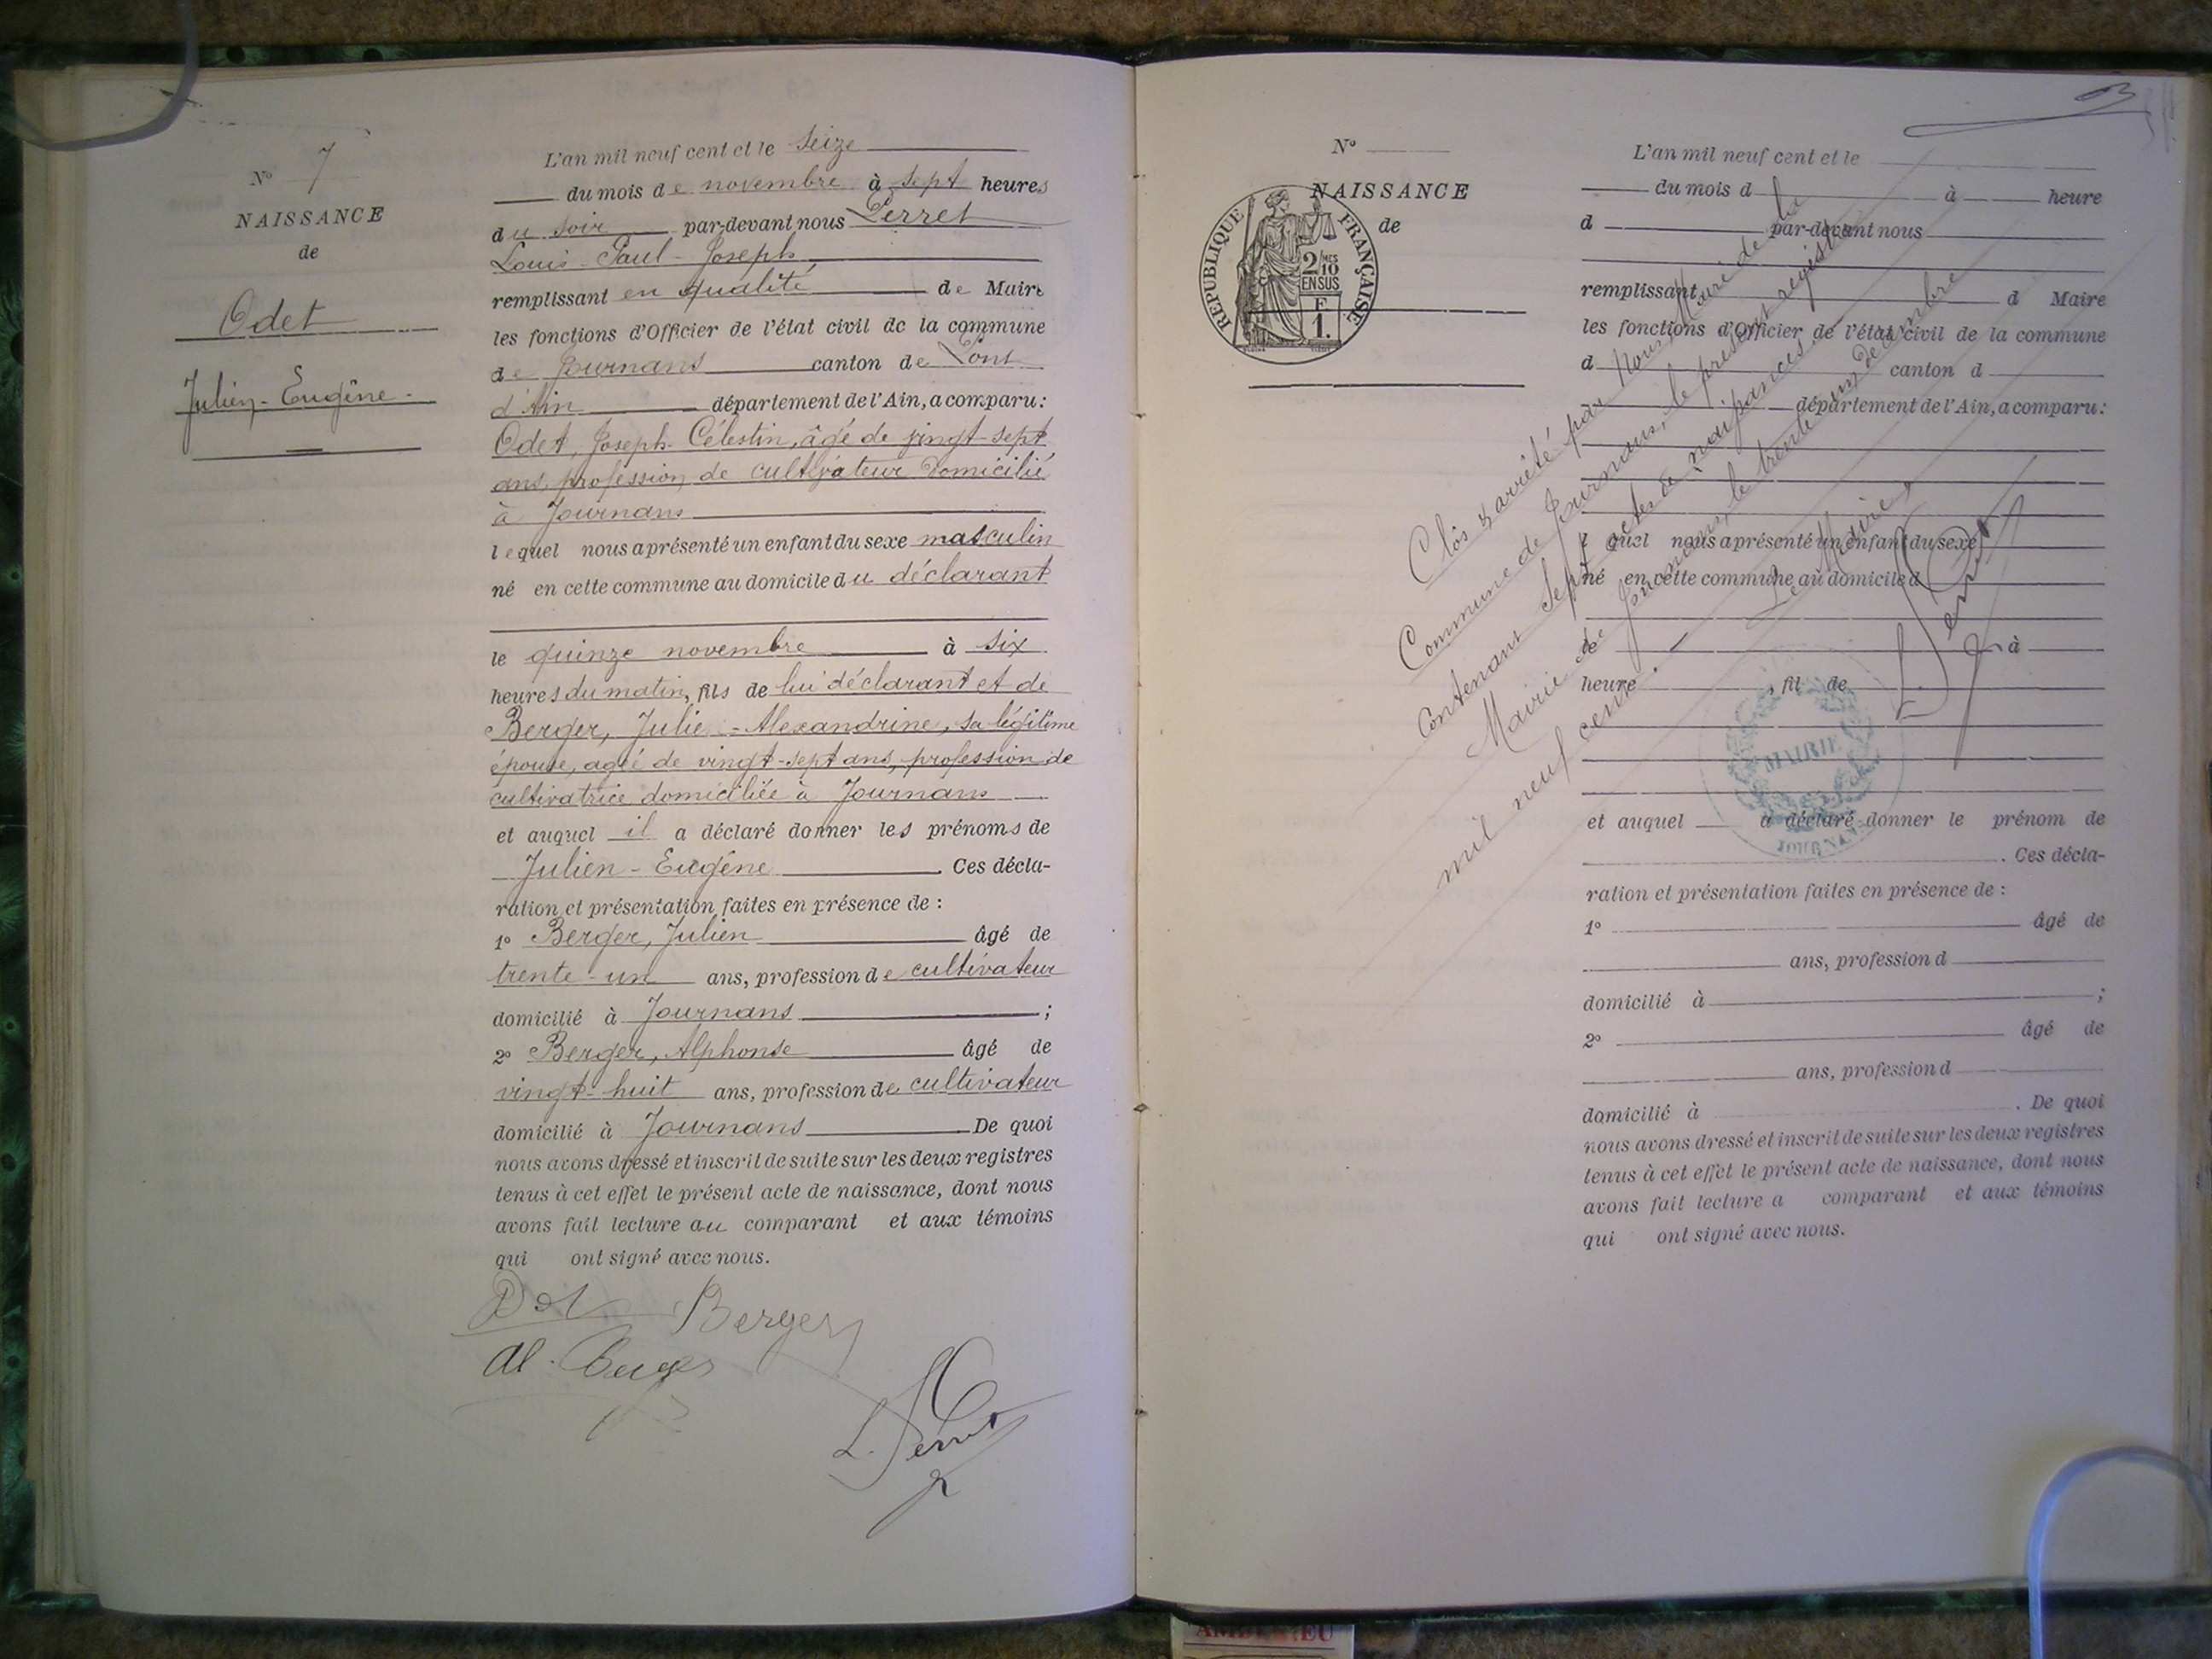 N° 7
NAISSANCE
de
Odet
Julien-Eugène-
L'an mil neuf cent et le seize
du mois de novembre à sept heures
du soir par-devant nous Perret
Louis-Paul-Joseph
remplissant en qualité de Maire
les fonctions d'Officier de l'état civil de la commune
de Journans canton de Pont
d'Ain département de l'Ain, a comparu:
Odet, Joseph-Célestin, âgé de vingt-sept
ans, profession de cultivateur domicilié
à Journans
lequel nous a présenté un enfant du sexe masculin
né en cette commune au domicile du déclarant
le quinze novembre à six
heures du matin, fils de lui déclarant et de
Berger, Julie-Alexandrine, sa légitime
épouse, agée de vingt-sept ans, profession de
cultivatrice domiciliée à Journans
et auquel il a déclaré donner les prénoms de
Julien-Eugène. Ces décla-
ration et présentation faites en présence de :
1° Berger, Julien âgé de
trente-un ans, profession de cultivateur
domicilié à Journans ;
2° Berger, Alphonse âgé de
vingt-huit ans, profession de cultivateur
domicilié à Journans De quoi
nous avons dressé et inscrit de suite sur les deux registres
tenus à cet effet le présent acte de naissance, dont nous
avons fait lecture au comparant et aux témoins
qui ont signé avec nous.
Odet Berger
Al. Berger
L. Perret
N°
NAISSANCE
de
REPUBLIQUE FRANÇAISE
2/10 MES
EN SUS
F
1.
L'an mil neuf cent et le
du mois d à heure
d par-devant nous
remplissant d Maire
les fonctions d'Officier de l'état civil de la commune
d canton d
département de l'Ain, a comparu:
l quel nous a présenté un enfant du sexe
né en cette commune au domicile d
le à
heure , fil de
et auquel a déclaré donner le prénom de
. Ces décla-
ration et présentation faites en présence de :
1° âgé de
ans, profession d
domicilié à ;
2° âgé de
ans, profession d
domicilié à . De quoi
nous avons dressé et inscrit de suite sur les deux registres
tenus à cet effet le présent acte de naissance, dont nous
avons fait lecture a comparant et aux témoins
qui ont signé avec nous.
Clos & arrêté par Nous, Maire de la
Commune de Journans, le présent registre
contenant sept actes de naissances
Mairie de Journans, le trente un Décembre
mil neuf cent.
Le Maire,
L. Perret
MAIRIE
JOURNANS